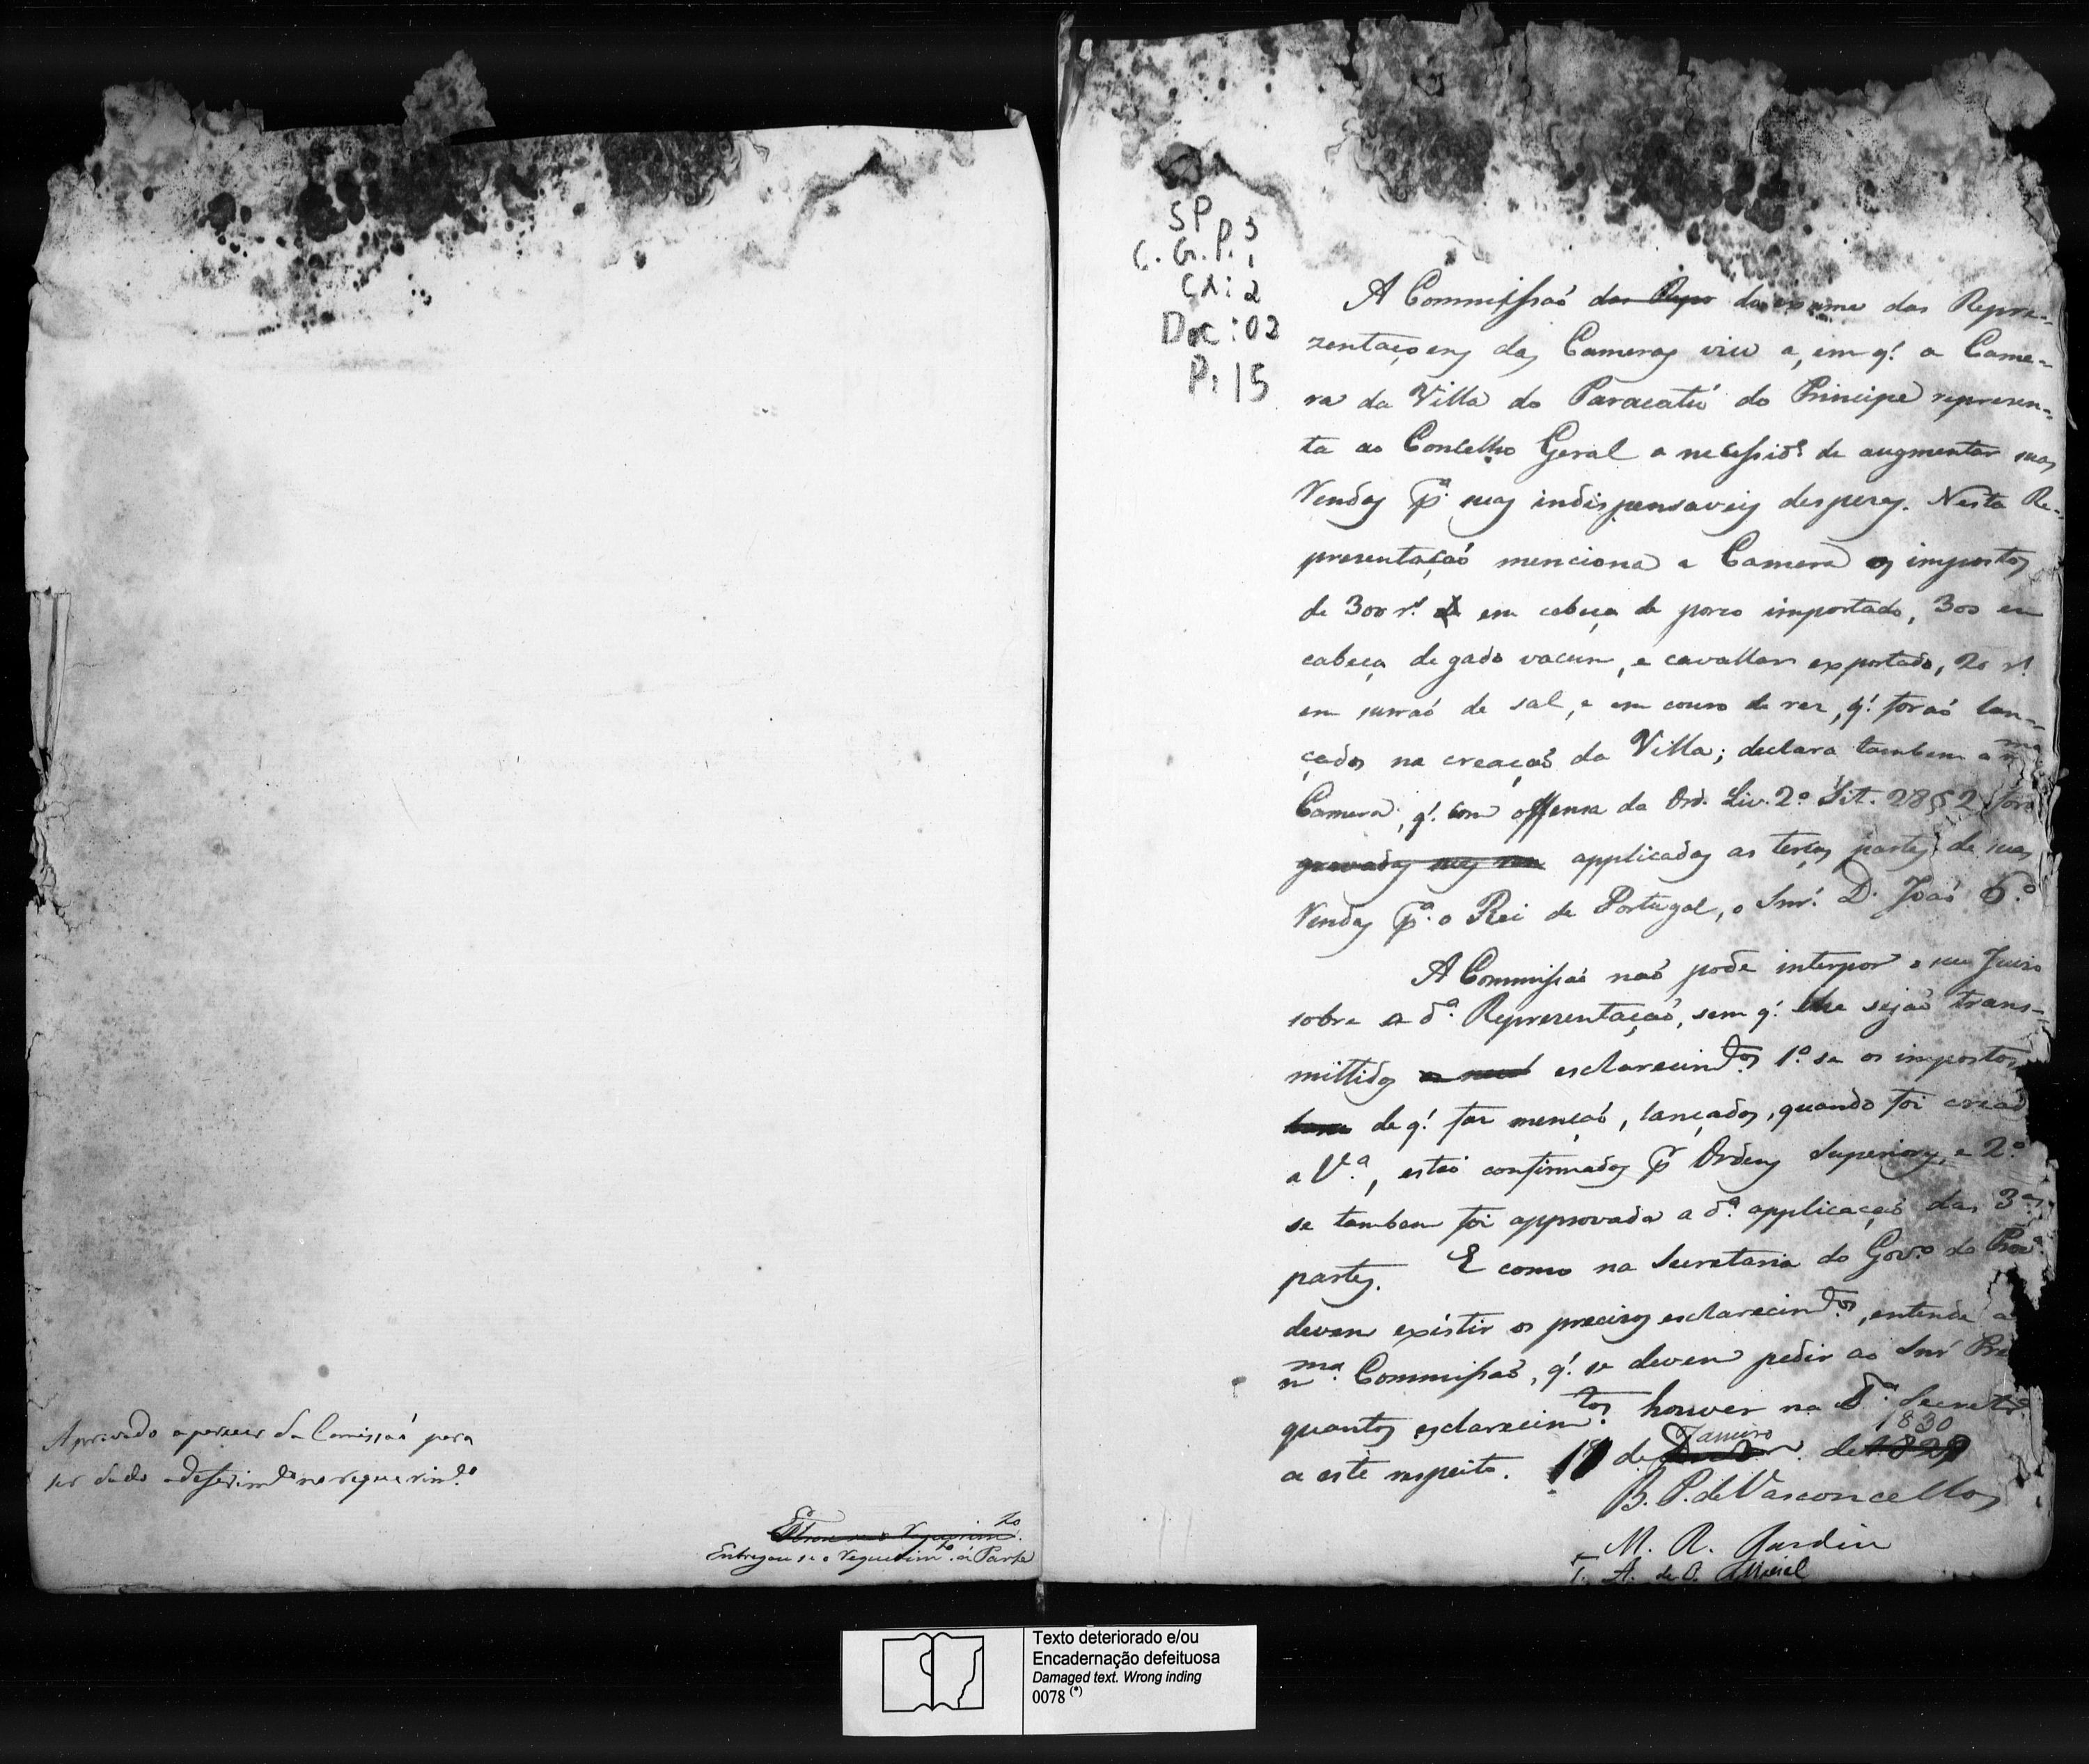 Aprovado o parecer da Comissaõ para
ser dado o deferim.to no requerim.to
Entregou se o requerim.to á Parte
SP
C. G. P. 1 3
CX: 2
Doc: 02
P: 15
A Commissaõ das Repre do exame das Repre-
zentaçoens das Cameras viu a, em q.' a Came-
ra da Villa do Paracatú do Principe represen-
ta ao Concelho Geral a necessid.e de augmentar suas
Rendas p.a suas indispensaveis despezas. Nesta Re-
presentaçaõ menciona a Camera os impostos
de 300 r.s em cabeça de porco importado, 300 em
cabeça de gado vacum, e cavallar exportado, 20 r.s
em surraõ de sal, e em couro de rez, q.' foraõ lan-
çados na creaçaõ da Villa; declara tambem a m.ma
Camera, q.' com offensa da Ord. Liv. 2.º Tit. 28 § 2 fora
gravadas suas ren applicadas as terças partes de suas
Rendas p.a o Rei de Portugal, o Snr.' D. Joaõ 6.º
A Commissaõ naõ pode interpor o seu Juizo
sobre a d.a Representaçaõ, sem q.' lhe sejaõ trans-
mittidos esclarecim.tos 1.º se os impostos
de q.' faz mençaõ, lançados, quando foi cread
a V.a, estaõ confirmados p.r Ordens Superiores, e 2.º
se tambem foi approvada a d.a applicaçaõ das 3.as
partes. E como na Secretaria do Gov.o da Prov.a
devem existir os precisos esclarecim.tos, entende a
m.ma Commissaõ, q.' se devem pedir ao Snr' Pre
quantos esclarecim.tos houver na d.a Secret.a
a este respeito. 18 de Janeiro de 1830
B. P. de Vasconcellos
M. R. Jardim
T. A. de O. Maciel
Texto deteriorado e/ou
Encadernação defeituosa
Damaged text. Wrong inding
0078 (*)